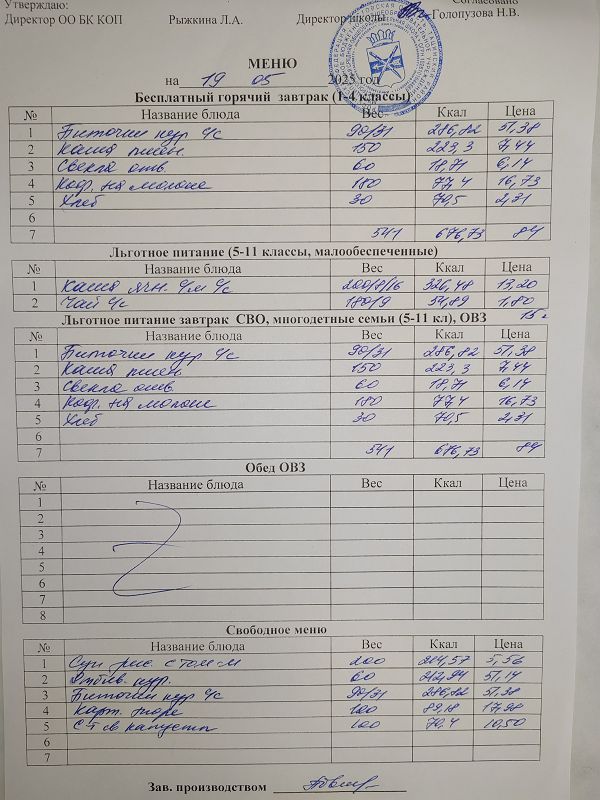 Утверждаю:
Согласовано
Директор ОО БК КОП Рыжкина Л.А. Директор школы Голопузова Н.В.
МЕНЮ
на 19 05 2025 год
Бесплатный горячий завтрак (1-4 классы)
№ Название блюда Вес Ккал Цена
1 Биточки кур с/с 90/31 286,82 51,38
2 Каша пшен 150 223,3 7,44
3 Свекла отв. 60 18,71 6,14
4 Коф. на молоке 180 77,4 16,73
5 Хлеб 30 70,5 2,31
6
7 541 676,73 84
Льготное питание (5-11 классы, малообеспеченные)
№ Название блюда Вес Ккал Цена
1 Каша ячн. с/м с/с 200/8/16 326,48 13,20
2 Чай с/с 180/9 54,89 1,80
15
Льготное питание завтрак СВО, многодетные семьи (5-11 кл), ОВЗ
№ Название блюда Вес Ккал Цена
1 Биточки кур с/с 90/31 286,82 51,38
2 Каша пшен 150 223,3 7,44
3 Свекла отв. 60 18,71 6,14
4 Коф. на молоке 180 77,4 16,73
5 Хлеб 30 70,5 2,31
6
7 541 676,73 84
Обед ОВЗ
№ Название блюда Вес Ккал Цена
1
2
3
4
5
6
7
8
Свободное меню
№ Название блюда Вес Ккал Цена
1 Суп рис. с том м 200 5,56
2 кур. 60 212,94 51,14
3 Биточки кур с/с 90/31 286,82 51,38
4 Карт. пюре 100 89,18 17,98
5 капусты 100 70,4 10,50
6
7
Зав. производством